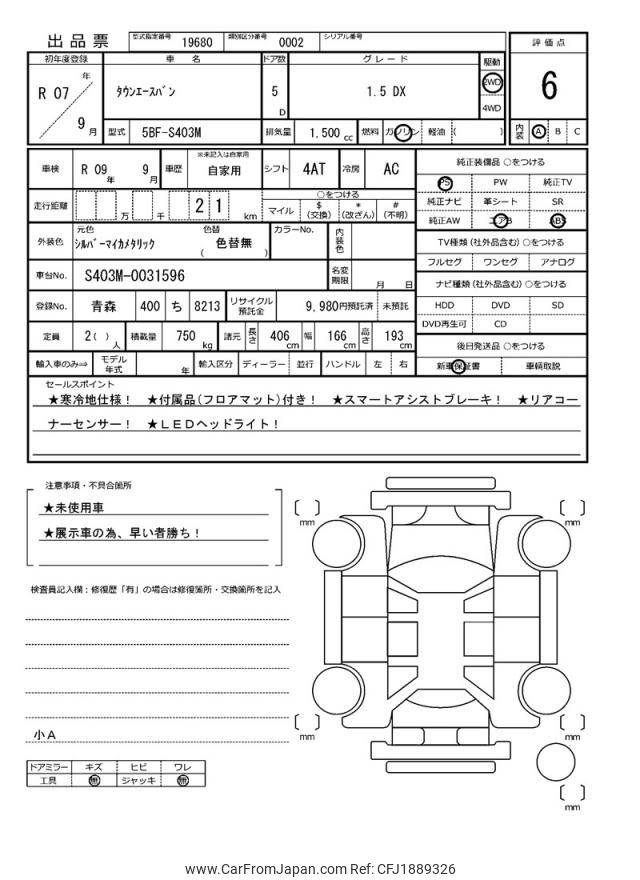 出品票 型式指定番号 19680 類別区分番号 0002 シリアル番号
初年度登録 車 名 ドア数 グレード 駆動 評価点
R 07 年 9 月 ﾀｳﾝｴｰｽﾊﾞﾝ 5 D 1.5 DX 2WD 4WD 6
型式 5BF-S403M 排気量 1.500 cc 燃料 ガソリン 軽油 ( ) 内装 A B C
車検 R 09 年 9 月 車歴 ※未記入は自家用 自家用 シフト 4AT 冷房 AC 純正装備品 ○をつける
PS PW 純正TV
走行距離 万 千 2 1 km ○をつける
マイル $ (交換) * (改ざん) # (不明)
純正ナビ 革シート SR
純正AW エアB ABS
外装色 元色 ｼﾙﾊﾞｰﾏｲｶﾒﾀﾘｯｸ 色替 ( 色替無 ) カラーNo. 内装色
TV種類(社外品含む)○をつける
フルセグ ワンセグ アナログ
車台No. S403M-0031596 名変期限 月 日
ナビ種類(社外品含む)○をつける
登録No. 青森 400 ち 8213 リサイクル預託金 9,980円預託済 未預託
HDD DVD SD
DVD再生可 CD
定員 2( ) 人 積載量 750 kg 諸元 長さ 406 cm 幅 166 cm 高さ 193 cm
後日発送品 ○をつける
輸入車のみ⇒ モデル年式 年 輸入区分 ディーラー 並行 ハンドル 左 右
新車保証書 車輌取説
セールスポイント
★寒冷地仕様! ★付属品(フロアマット)付き! ★スマートアシストブレーキ! ★リアコー
ナーセンサー! ★LEDヘッドライト!
注意事項・不具合箇所
★未使用車
★展示車の為、早い者勝ち!
検査員記入欄:修復歴「有」の場合は修復箇所・交換箇所を記入
小A
ドアミラー キズ ヒビ ワレ
工具 無 ジャッキ 無
[ ] mm
[ ] mm
[ ] mm
[ ] mm
[ ] mm
www.CarFromJapan.com Ref: CFJ1889326